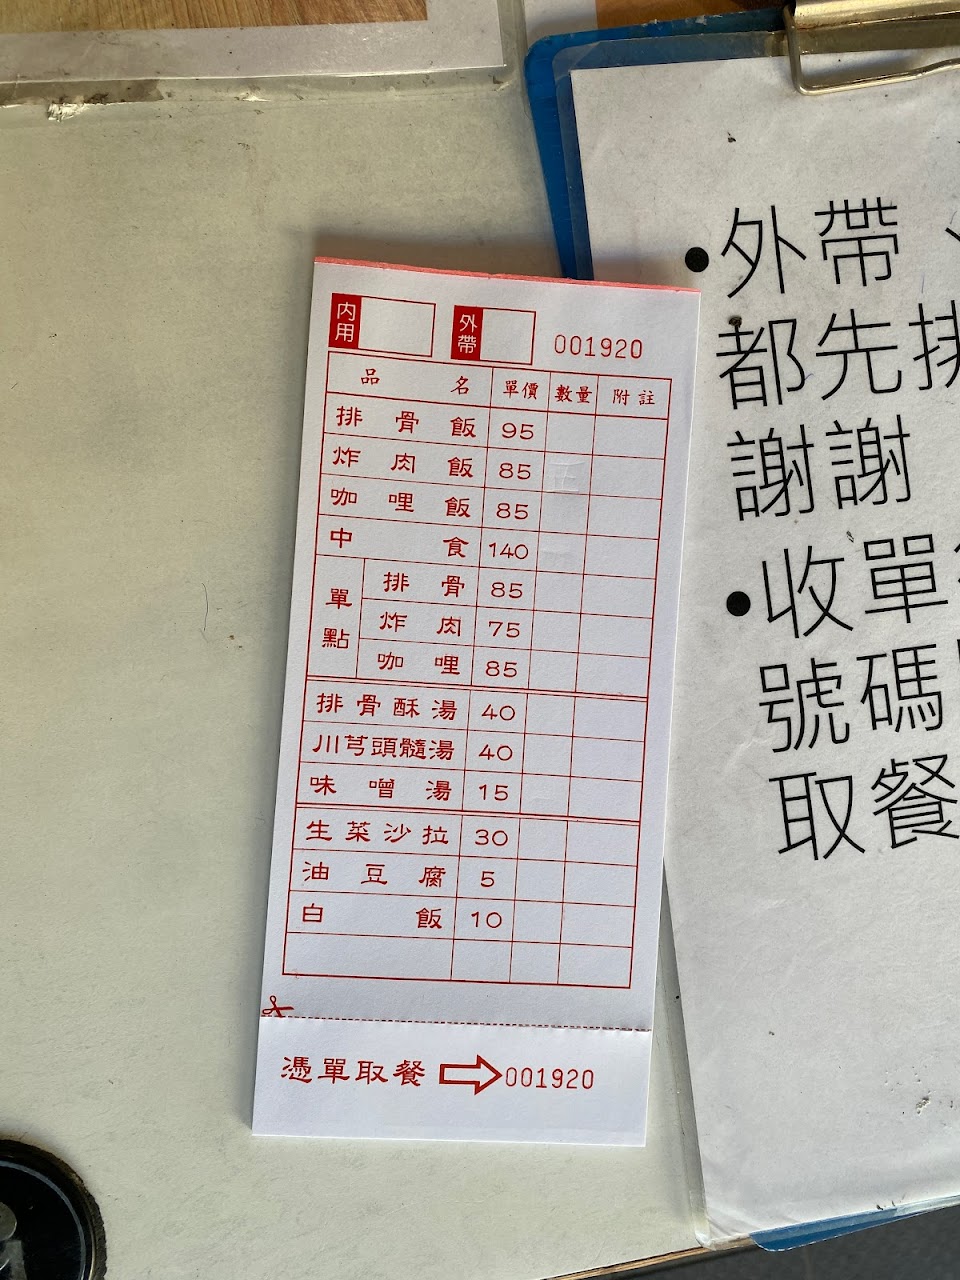 內用 外帶 001920
品名 單價 數量 附註
排骨飯 95
炸肉飯 85
咖哩飯 85
中食 140
單點
排骨 85
炸肉 75
咖哩 85
排骨酥湯 40
川芎頭髓湯 40
味噌湯 15
生菜沙拉 30
油豆腐 5
白飯 10
憑單取餐 001920
•外帶
都先排
謝謝
•收單
號碼
取餐